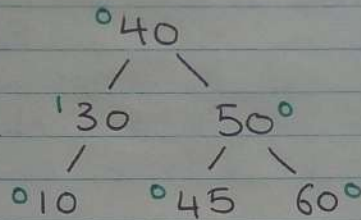 0 40
1 30 50 0
0 10 0 45 60 0